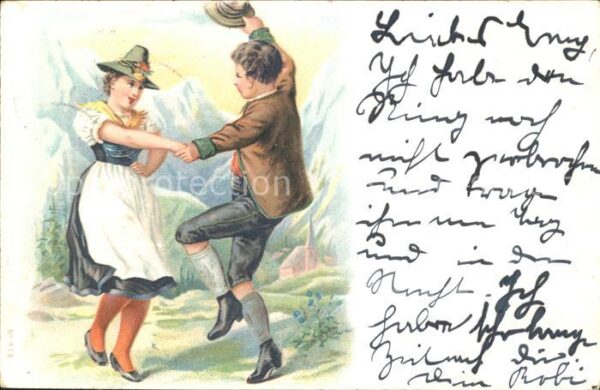 Liebes Emy,
Ich habe den
Ring noch
nicht zerbrochen
und trage
ihn am Tag
und in der
Nacht. Ich
habe schon lange
Zeit nach dir.
dein Robi